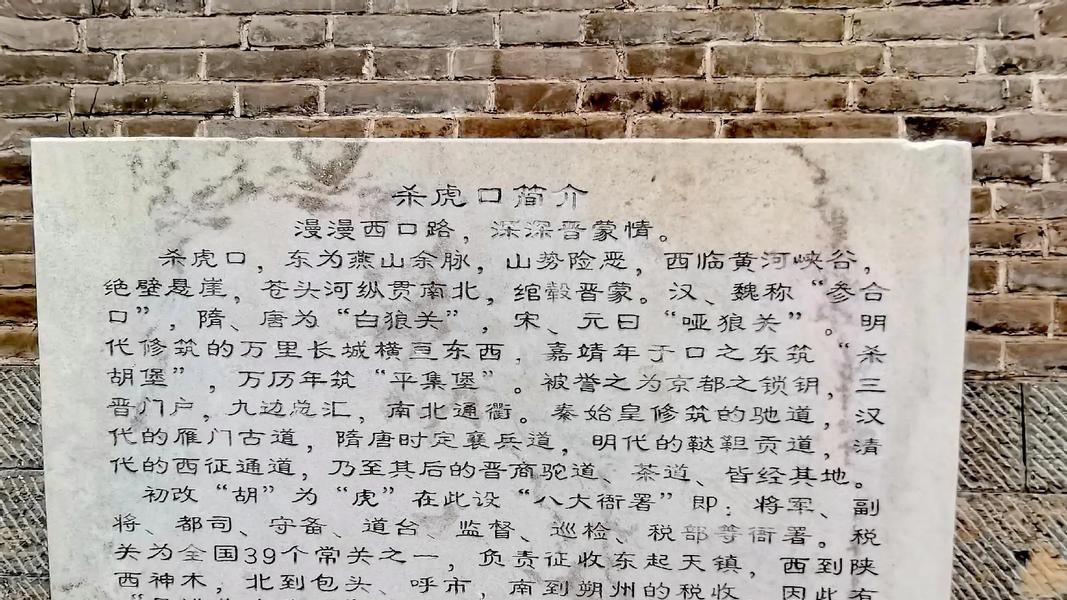 杀虎口简介
漫漫西口路，深深晋蒙情。
杀虎口，东为燕山余脉，山势险恶，西临黄河峡谷，
绝壁悬崖，苍头河纵贯南北，绾毂晋蒙。汉、魏称“参合
口”，隋、唐为“白狼关”，宋、元曰“哑狼关”。明
代修筑的万里长城横亘东西，嘉靖年于口之东筑“杀
胡堡”，万历年筑“平集堡”。被誉之为京都之锁钥，三
晋门户，九边总汇，南北通衢。秦始皇修筑的驰道，汉
代的雁门古道，隋唐时定襄兵道，明代的鞑靼贡道，清
代的西征通道，乃至其后的晋商驼道、茶道、皆经其地。
初改“胡”为“虎”在此设“八大衙署”即：将军、副
将、都司、守备、道台、监督、巡检、税部等衙署。税
关为全国39个常关之一，负责征收东起天镇，西到陕
西神木，北到包头、呼市，南到朔州的税收，因此有